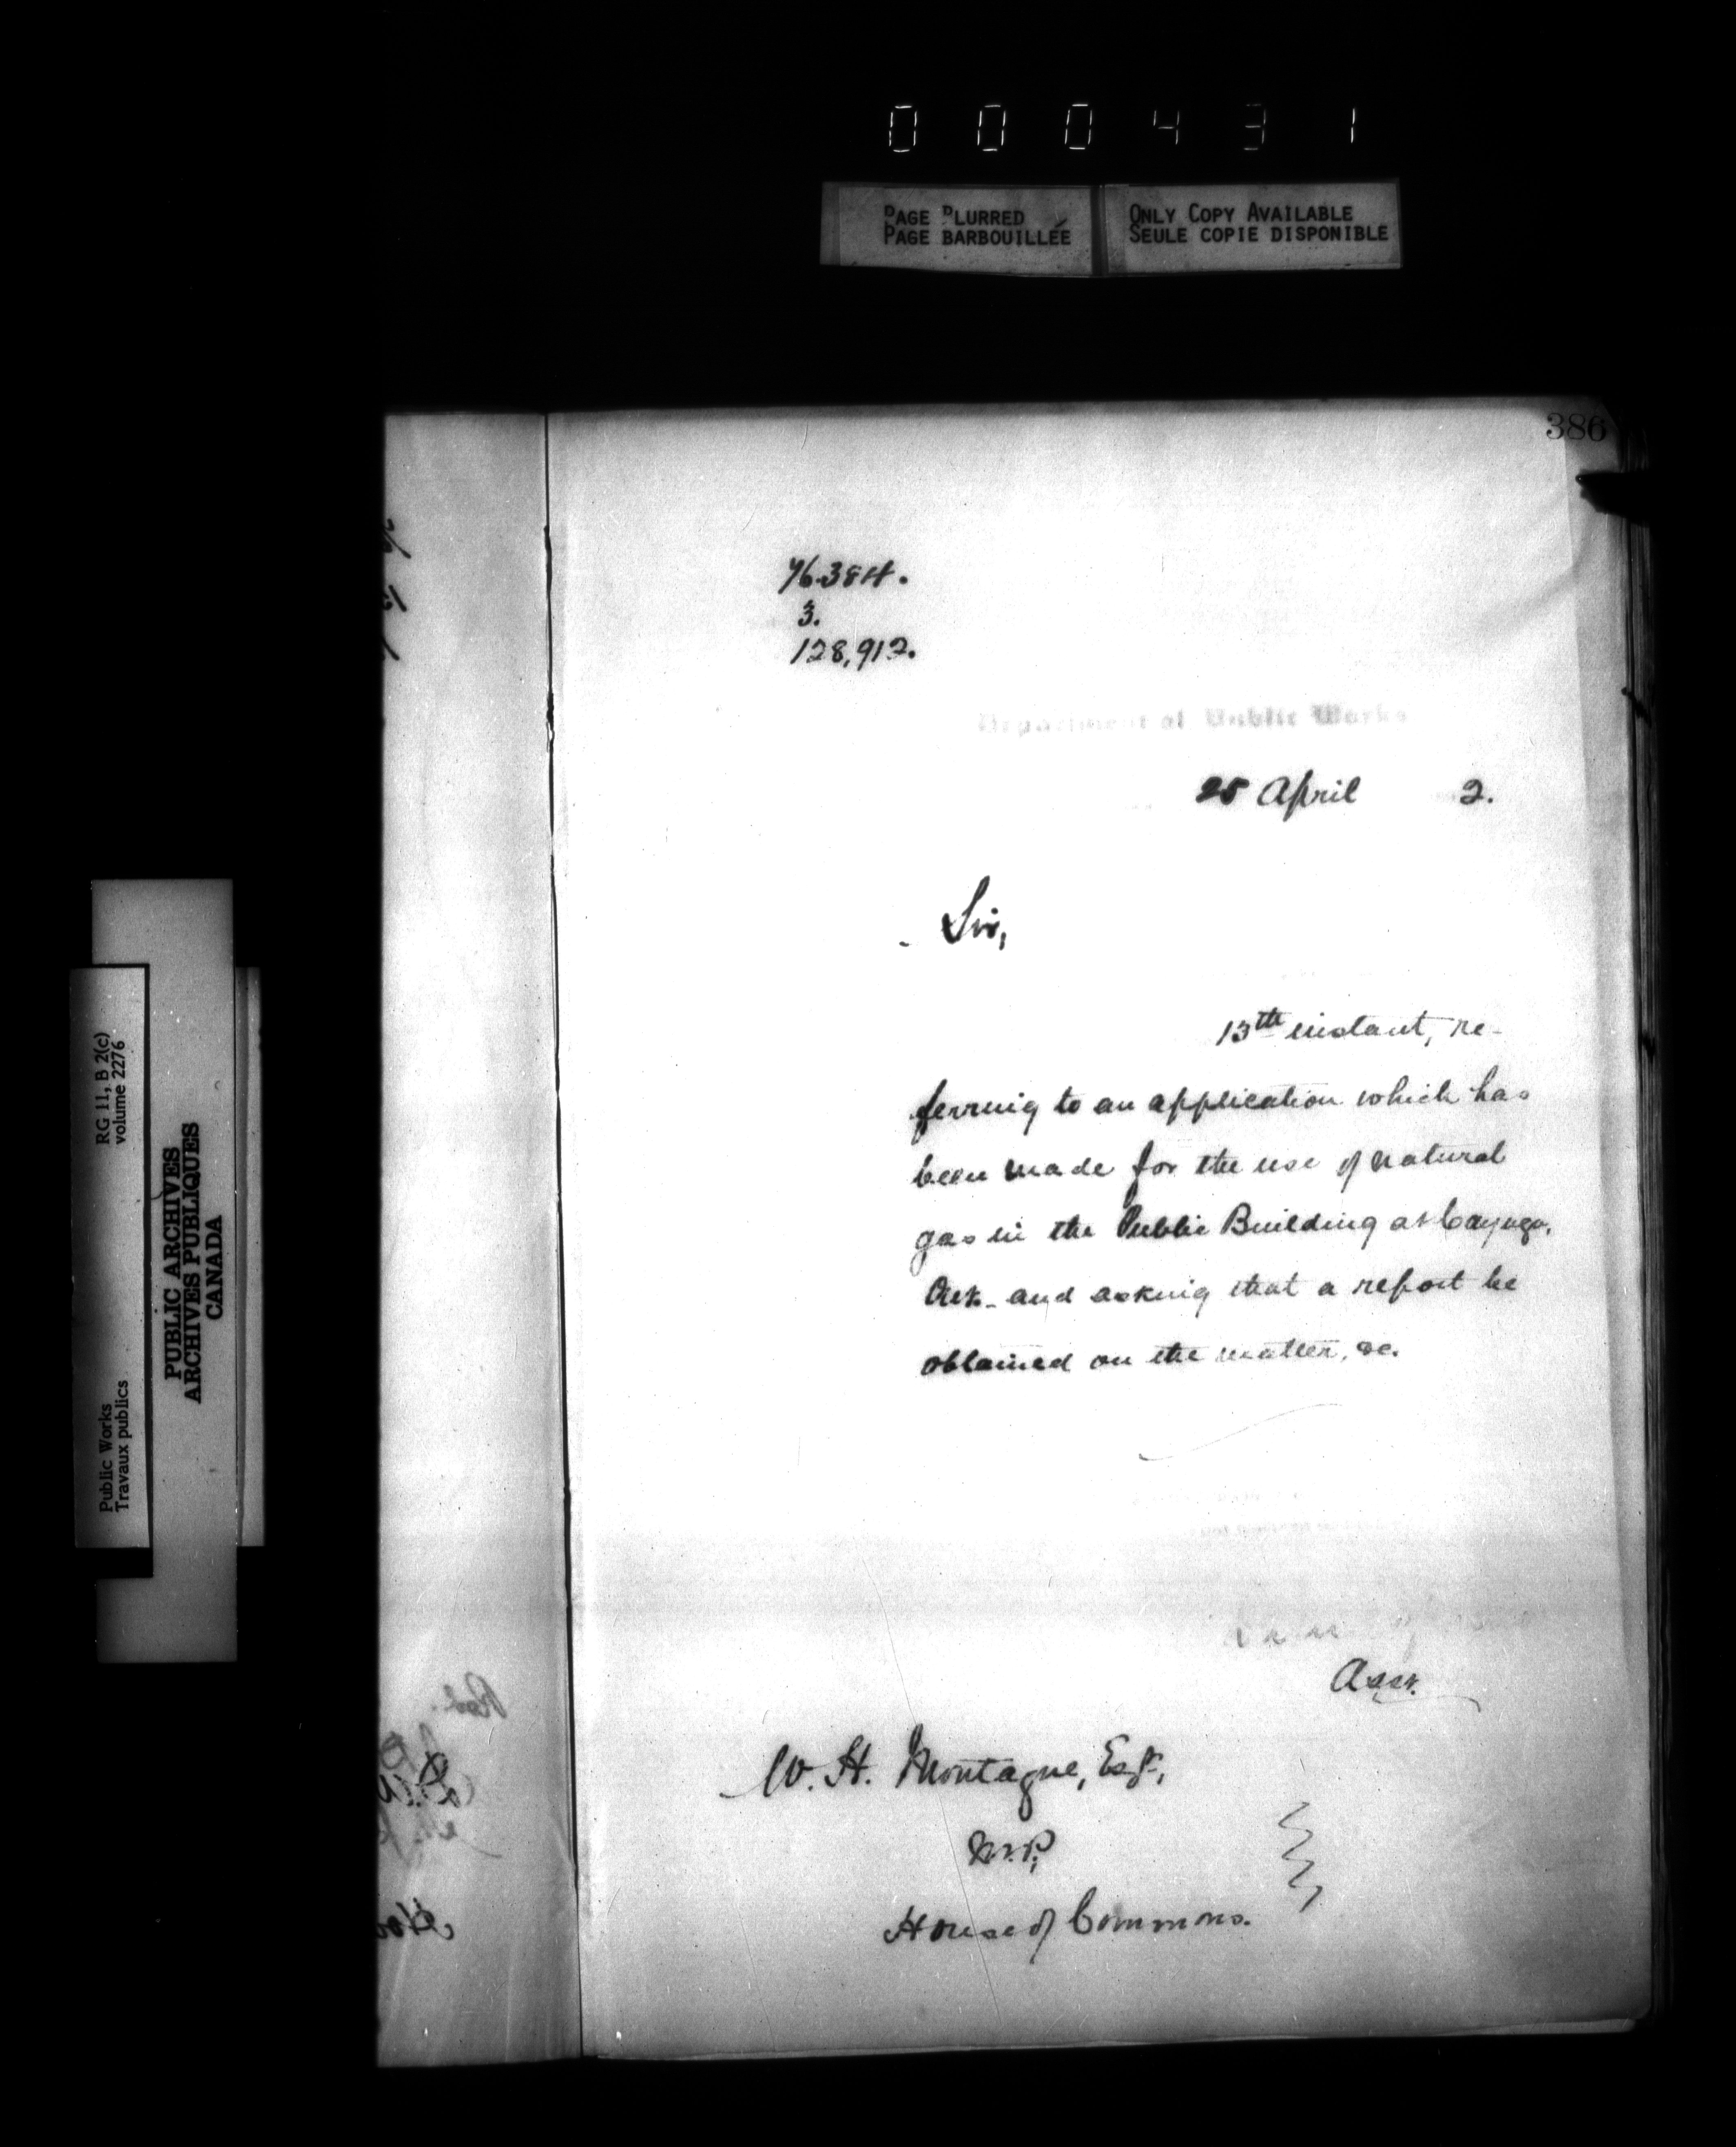 000431
PAGE BLURRED
PAGE BARBOUILLÉE
ONLY COPY AVAILABLE
SEULE COPIE DISPONIBLE
386
3.
128,912.
Department of Public Works
25 April 2.
Sir,
13th instant, re-
ferring to an application which has
been made for the use of natural
gas in the Public Building at Cayuga,
Ont. and asking that a report be
obtained on the matter, &c.
Asst.
W. H. Montague, Esqr,
M.P,
House of Commons.
RG 11, B 2(c)
volume 2276
Public Works
Travaux publics
PUBLIC ARCHIVES
ARCHIVES PUBLIQUES
CANADA